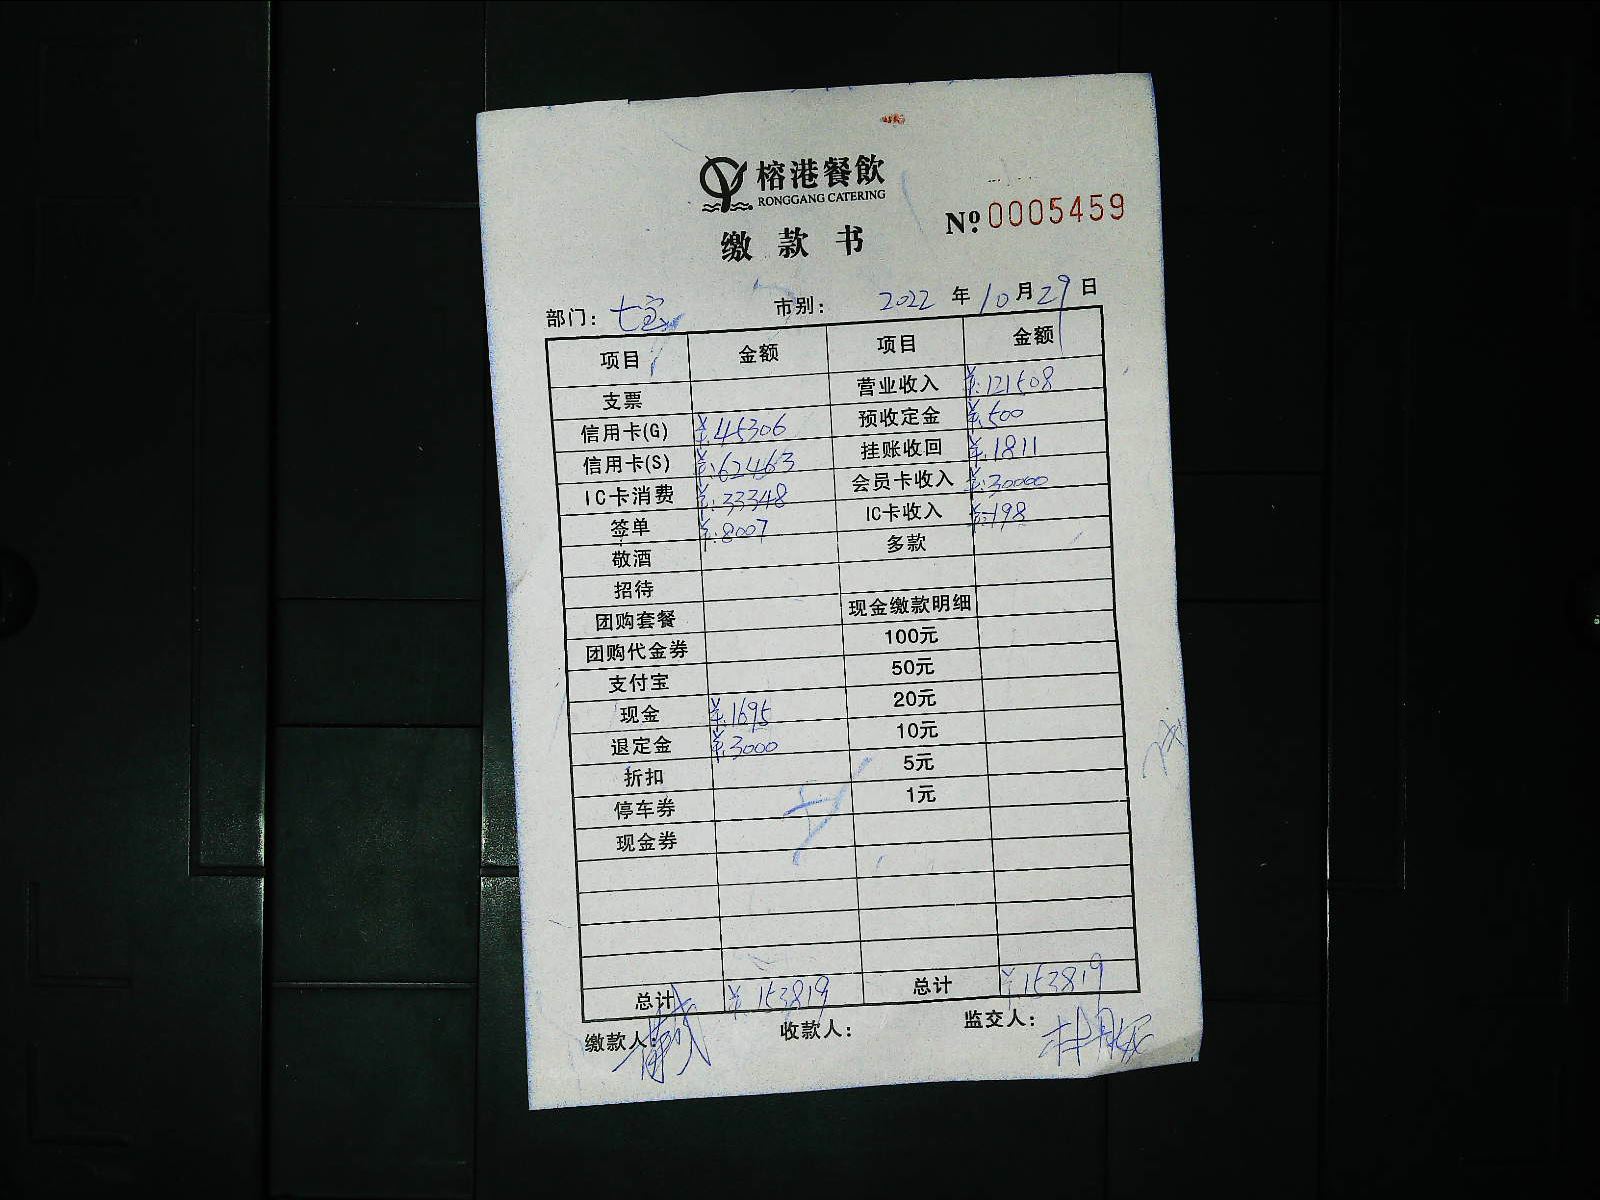 榕港餐飲
RONGGANG CATERING
№ 0005459
缴款书
部门: 七宝 市别: 2022 年 10 月 29 日
项目 金额 项目 金额
支票 营业收入 ¥:121508
信用卡(G) ¥:45306 预收定金 ¥:500
信用卡(S) ¥:62463 挂账收回 ¥:1811
IC卡消费 ¥:33348 会员卡收入 ¥:30000
签单 ¥:8007 IC卡收入 ¥:198
敬酒 多款
招待
团购套餐 现金缴款明细
团购代金券 100元
支付宝 50元
现金 ¥:1695 20元
退定金 ¥:3000 10元
折扣 5元
停车券 1元
现金券
总计 ¥:153819 总计 ¥153819
缴款人: 收款人: 监交人: